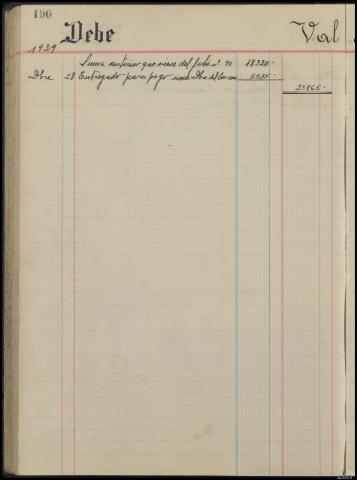 190
Debe Val
1939
Suma anterior que viene del folio nº 18330-
Dbre 28 Entregado para pago 5535-
23865-